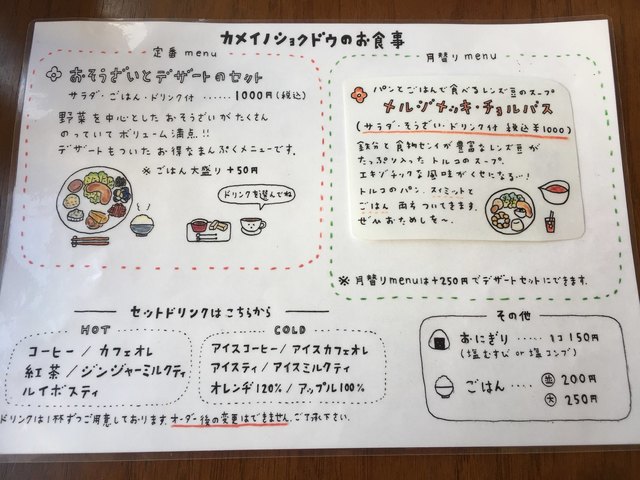 カメイノショクドウのお食事
定番 menu
おそうざいとデザートのセット
サラダ・ごはん・ドリンク付 ‥‥‥ 1000円(税込)
野菜を中心とした おそうざいがたくさん
のっていて ボリューム満点!!
デザートもついた お得なまんぷくメニューです。
※ ごはん大盛り +50円
ドリンクを選んでね
月替り menu
パンとごはんで食べるレンズ豆のスープ
メルジメッキ・チョルバス
(サラダ・そうざい・ドリンク付 税込¥1000)
鉄分と食物センイが豊富なレンズ豆が
たっぷり入ったトルコのスープ。
エキゾチックな風味がくせになる…!
トルコのパン、スィミットと
ごはん 両方ついてきます。
ぜひおためしを〜。
※ 月替りmenuは+250円でデザートセットにできます。
セットドリンクはこちらから
HOT
コーヒー / カフェオレ
紅茶 / ジンジャーミルクティ
ルイボスティ
COLD
アイスコーヒー / アイスカフェオレ
アイスティ / アイスミルクティ
オレンヂ120% / アップル100%
ドリンクは1杯ずつご用意しております。オーダー後の変更はできません。ご了承下さい。
その他
おにぎり ‥‥ 1コ150円
(塩むすび or 塩コンブ)
ごはん ‥‥ 並 200円
大 250円